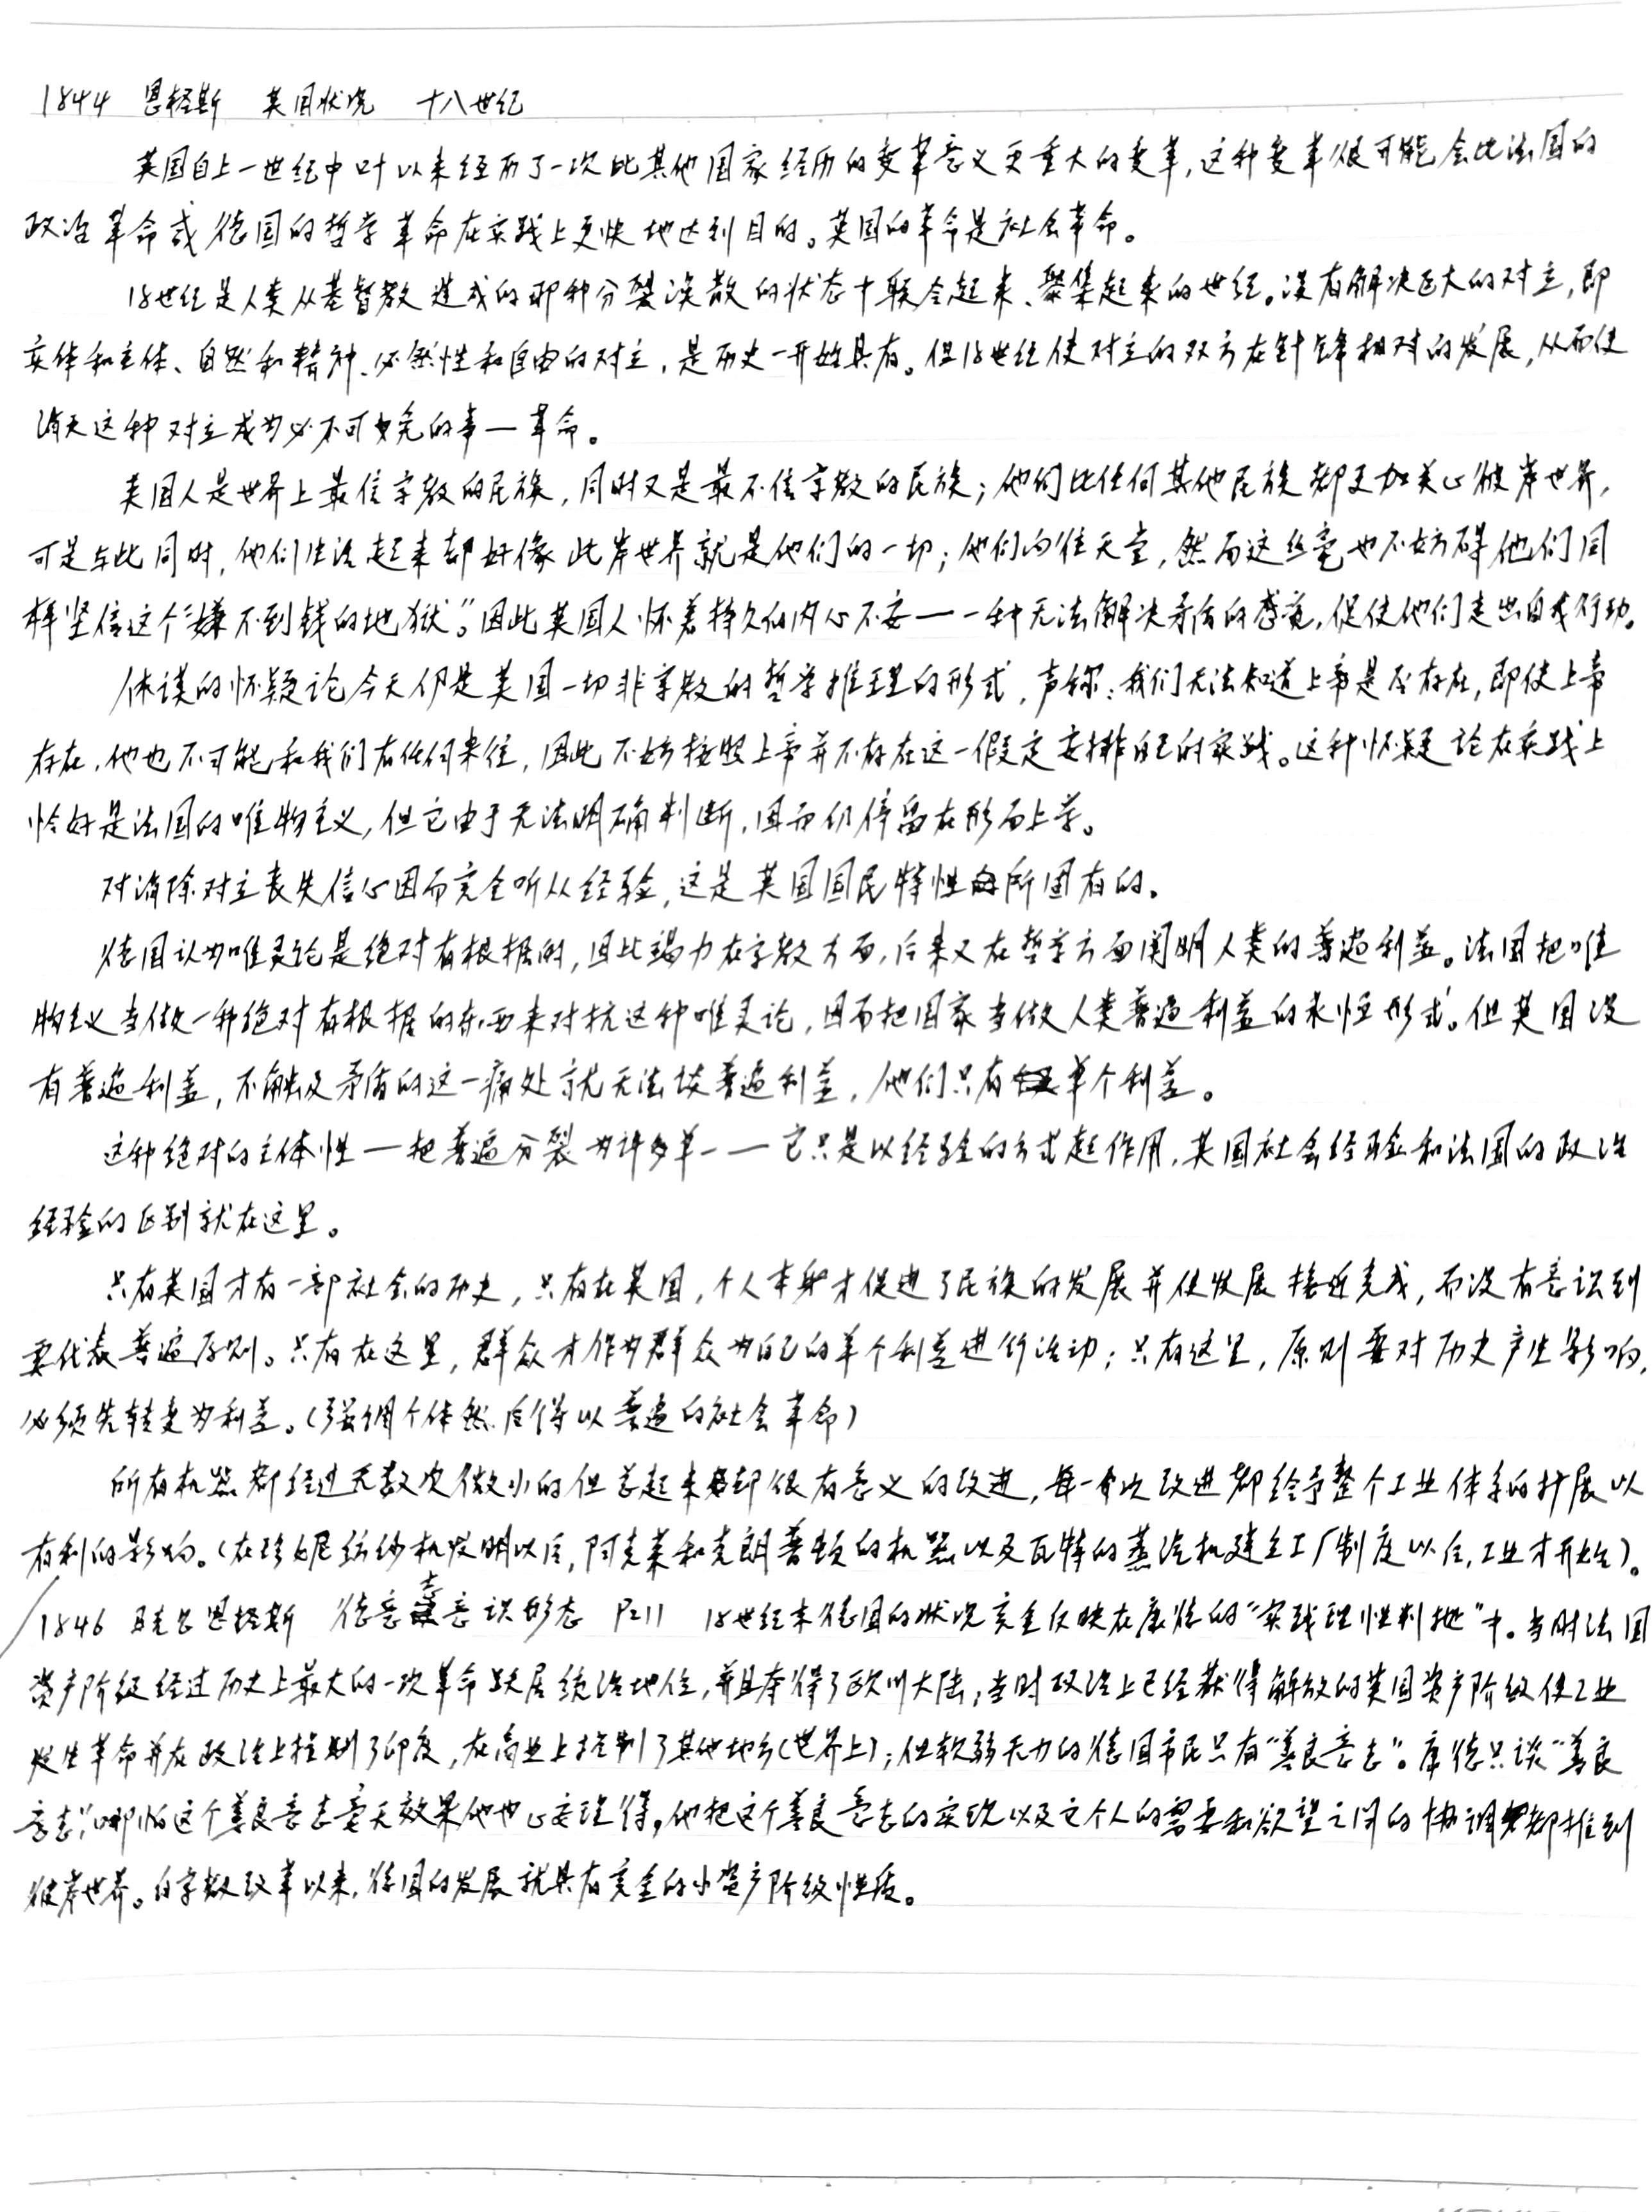 1844 恩格斯 英国状况 十八世纪
英国自上一世纪中叶以来经历了一次比其他国家经历的变革意义更重大的变革,这种变革很可能会比法国的
政治革命或德国的哲学革命在实践上更快地达到目的。英国的革命是社会革命。
18世纪是人类从基督教造成的那种分裂涣散的状态中联合起来、聚集起来的世纪。没有解决巨大的对立,即
实体和主体、自然和精神、必然性和自由的对立,是历史一开始具有。但18世纪使对立的双方在针锋相对的发展,从而使
消灭这种对立成为必不可免的事—革命。
英国人是世界上最信宗教的民族,同时又是最不信宗教的民族;他们比任何其他民族都更加关心彼岸世界,
可是与此同时,他们生活起来却好像此岸世界就是他们的一切;他们向往天堂,然而这丝毫也不妨碍他们同
样坚信这个“赚不到钱的地狱”。因此英国人怀着持久的内心不安—一种无法解决矛盾的感觉,促使他们走出自我行动。
休谟的怀疑论今天仍是英国一切非宗教的哲学推理的形式,声称:我们无法知道上帝是否存在,即使上帝
存在,他也不可能和我们有任何来往,因此不妨按照上帝并不存在这一假定安排自己的实践。这种怀疑论在实践上
恰好是法国的唯物主义,但它由于无法明确判断,因而仍停留在形而上学。
对消除对立丧失信心因而完全听从经验,这是英国国民特性所固有的。
德国认为唯灵论是绝对有根据的,因此竭力在宗教方面,后来又在哲学方面阐明人类的普遍利益。法国把唯
物主义当做一种绝对有根据的东西来对抗这种唯灵论,因而把国家当做人类普遍利益的永恒形式。但英国没
有普遍利益,不触及矛盾的这一痛处就无法谈普遍利益,他们只有单个利益。
这种绝对的主体性—把普遍分裂为许多单一—它只是以经验的方式起作用,英国社会经验和法国的政治
经验的区别就在这里。
只有英国才有一部社会的历史,只有在英国,个人本身才促进了民族的发展并使发展接近完成,而没有意识到
要代表普遍原则。只有在这里,群众才作为群众为自己的单个利益进行活动;只有这里,原则要对历史产生影响,
必须先转变为利益。(强调个体然后得以普遍的社会革命)
所有机器都经过无数次微小的但总起来却很有意义的改进,每一次改进都给予整个工业体系的扩展以
有利的影响。(在珍妮纺纱机发明以后,阿克莱和克朗普顿的机器以及瓦特的蒸汽机建立工厂制度以后,工业才开始)。
1846 马克思恩格斯 德意志意识形态 P211 18世纪末德国的状况完全反映在康德的“实践理性判批”中。当时法国
资产阶级经过历史上最大的一次革命跃居统治地位,并且夺得了欧州大陆;当时政治上已经获得解放的英国资产阶级使工业
发生革命并在政治上控制了印度,在商业上控制了其他地方(世界上);但软弱无力的德国市民只有“善良意志”。康德只谈“善良
意志”,哪怕这个善良意志毫无效果他也心安理得,他把这个善良意志的实现以及它个人的需要和欲望之间的协调都推到
彼岸世界。自宗教改革以来,德国的发展就具有完全的小资产阶级性质。